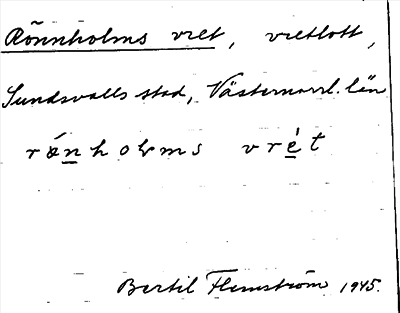 Rönnholms vret, vretlott,
Sundsvalls stad, Västernorrl. län
rǿnholms vrèt
Bertil Flemström 1945.